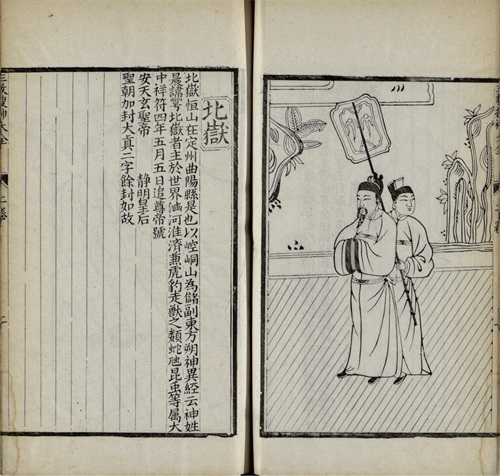 北嶽
北嶽恒山在定州曲陽縣是也以崆峒山為儲副東方朔神異經云神姓
晨諱萼北嶽者主於世界河淮濟兼虎豹走獸之類蛇虺昆虫等屬大
中祥符四年五月五日追尊帝號
安天玄聖帝　靜明皇后
聖朝加封大真二字餘封如故